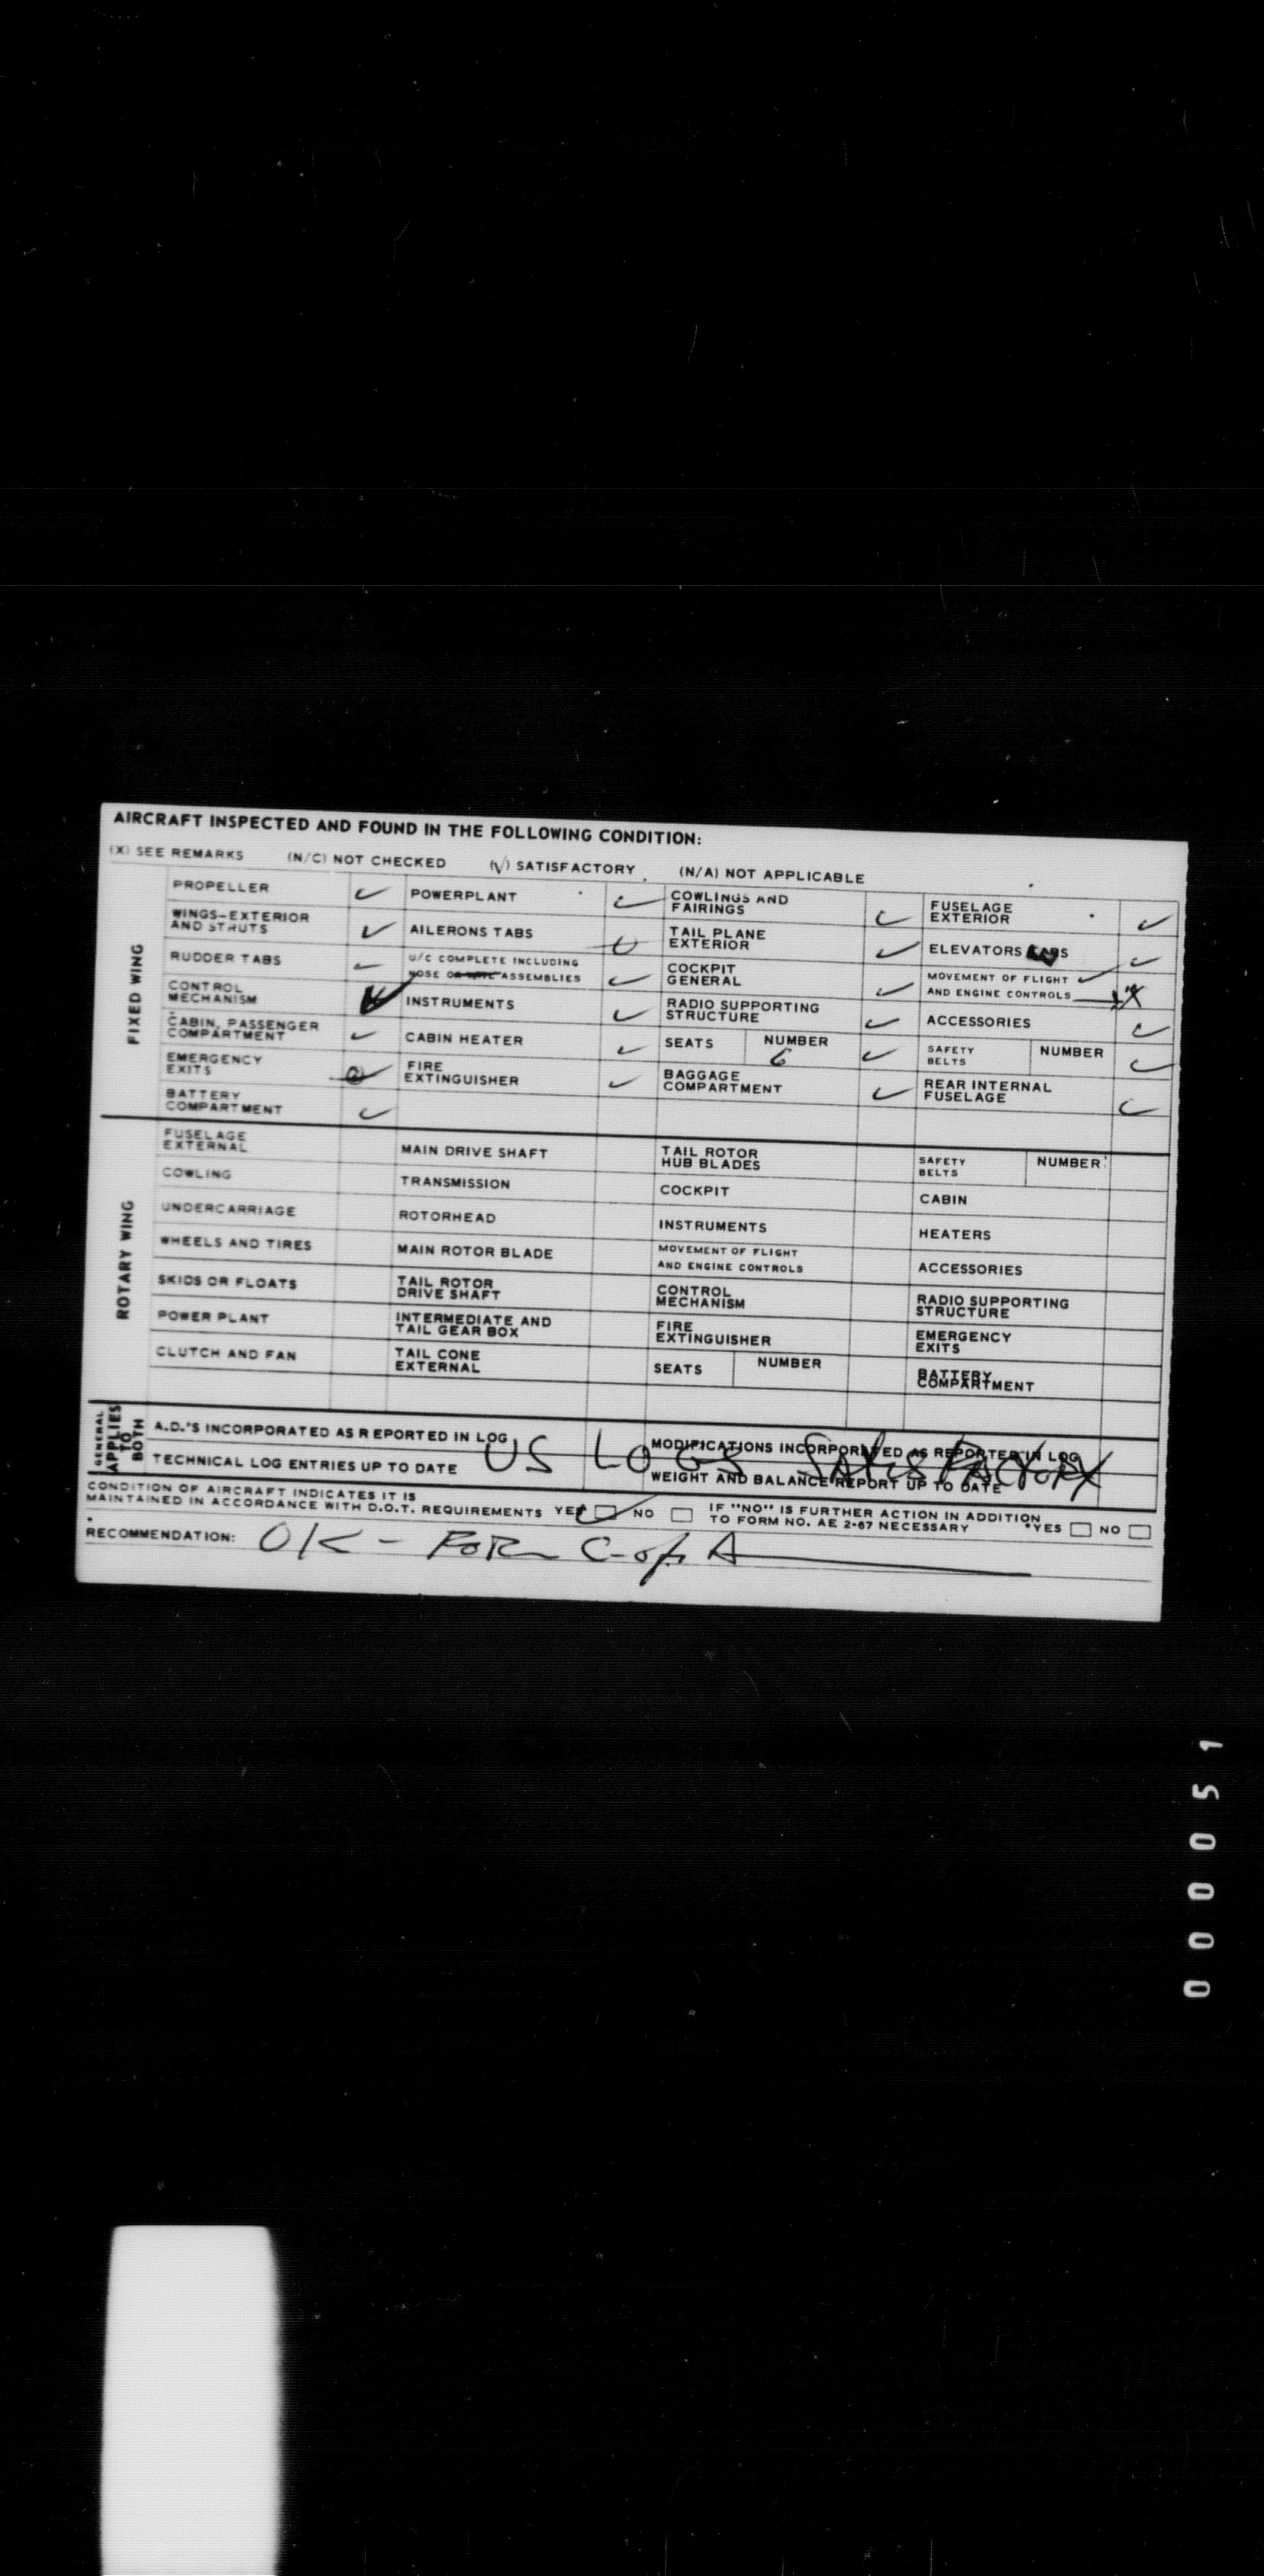 AIRCRAFT INSPECTED AND FOUND IN THE FOLLOWING CONDITION:
(X) SEE REMARKS (N/C) NOT CHECKED (√) SATISFACTORY (N/A) NOT APPLICABLE
FIXED WING
PROPELLER ✓ POWERPLANT ✓ COWLINGS AND FAIRINGS ✓ FUSELAGE EXTERIOR ✓
WINGS-EXTERIOR AND STRUTS ✓ AILERONS TABS TAIL PLANE EXTERIOR ✓ ELEVATORS ✓
RUDDER TABS ✓ U/C COMPLETE INCLUDING NOSE OR TAIL ASSEMBLIES ✓ COCKPIT GENERAL ✓ MOVEMENT OF FLIGHT ✓ AND ENGINE CONTROLS X
CONTROL MECHANISM ✓ INSTRUMENTS ✓ RADIO SUPPORTING STRUCTURE ✓ ACCESSORIES ✓
CABIN, PASSENGER COMPARTMENT ✓ CABIN HEATER ✓ SEATS NUMBER 6 ✓ SAFETY BELTS NUMBER ✓
EMERGENCY EXITS ✓ FIRE EXTINGUISHER ✓ BAGGAGE COMPARTMENT ✓ REAR INTERNAL FUSELAGE ✓
BATTERY COMPARTMENT ✓
ROTARY WING
FUSELAGE EXTERNAL MAIN DRIVE SHAFT TAIL ROTOR HUB BLADES SAFETY BELTS NUMBER
COWLING TRANSMISSION COCKPIT CABIN
UNDERCARRIAGE ROTORHEAD INSTRUMENTS HEATERS
WHEELS AND TIRES MAIN ROTOR BLADE MOVEMENT OF FLIGHT AND ENGINE CONTROLS ACCESSORIES
SKIDS OR FLOATS TAIL ROTOR DRIVE SHAFT CONTROL MECHANISM RADIO SUPPORTING STRUCTURE
POWER PLANT INTERMEDIATE AND TAIL GEAR BOX FIRE EXTINGUISHER EMERGENCY EXITS
CLUTCH AND FAN TAIL CONE EXTERNAL SEATS NUMBER BATTERY COMPARTMENT
GENERAL APPLIES TO BOTH
A.D.'S INCORPORATED AS REPORTED IN LOG MODIFICATIONS INCORPORATED AS REPORTED IN LOG
US LOGS Satisfactory
TECHNICAL LOG ENTRIES UP TO DATE WEIGHT AND BALANCE REPORT UP TO DATE
CONDITION OF AIRCRAFT INDICATES IT IS
MAINTAINED IN ACCORDANCE WITH D.O.T. REQUIREMENTS YES ✓ NO IF "NO" IS FURTHER ACTION IN ADDITION TO FORM NO. AE 2-67 NECESSARY *YES NO
RECOMMENDATION: OK - FOR C-of-A
000051